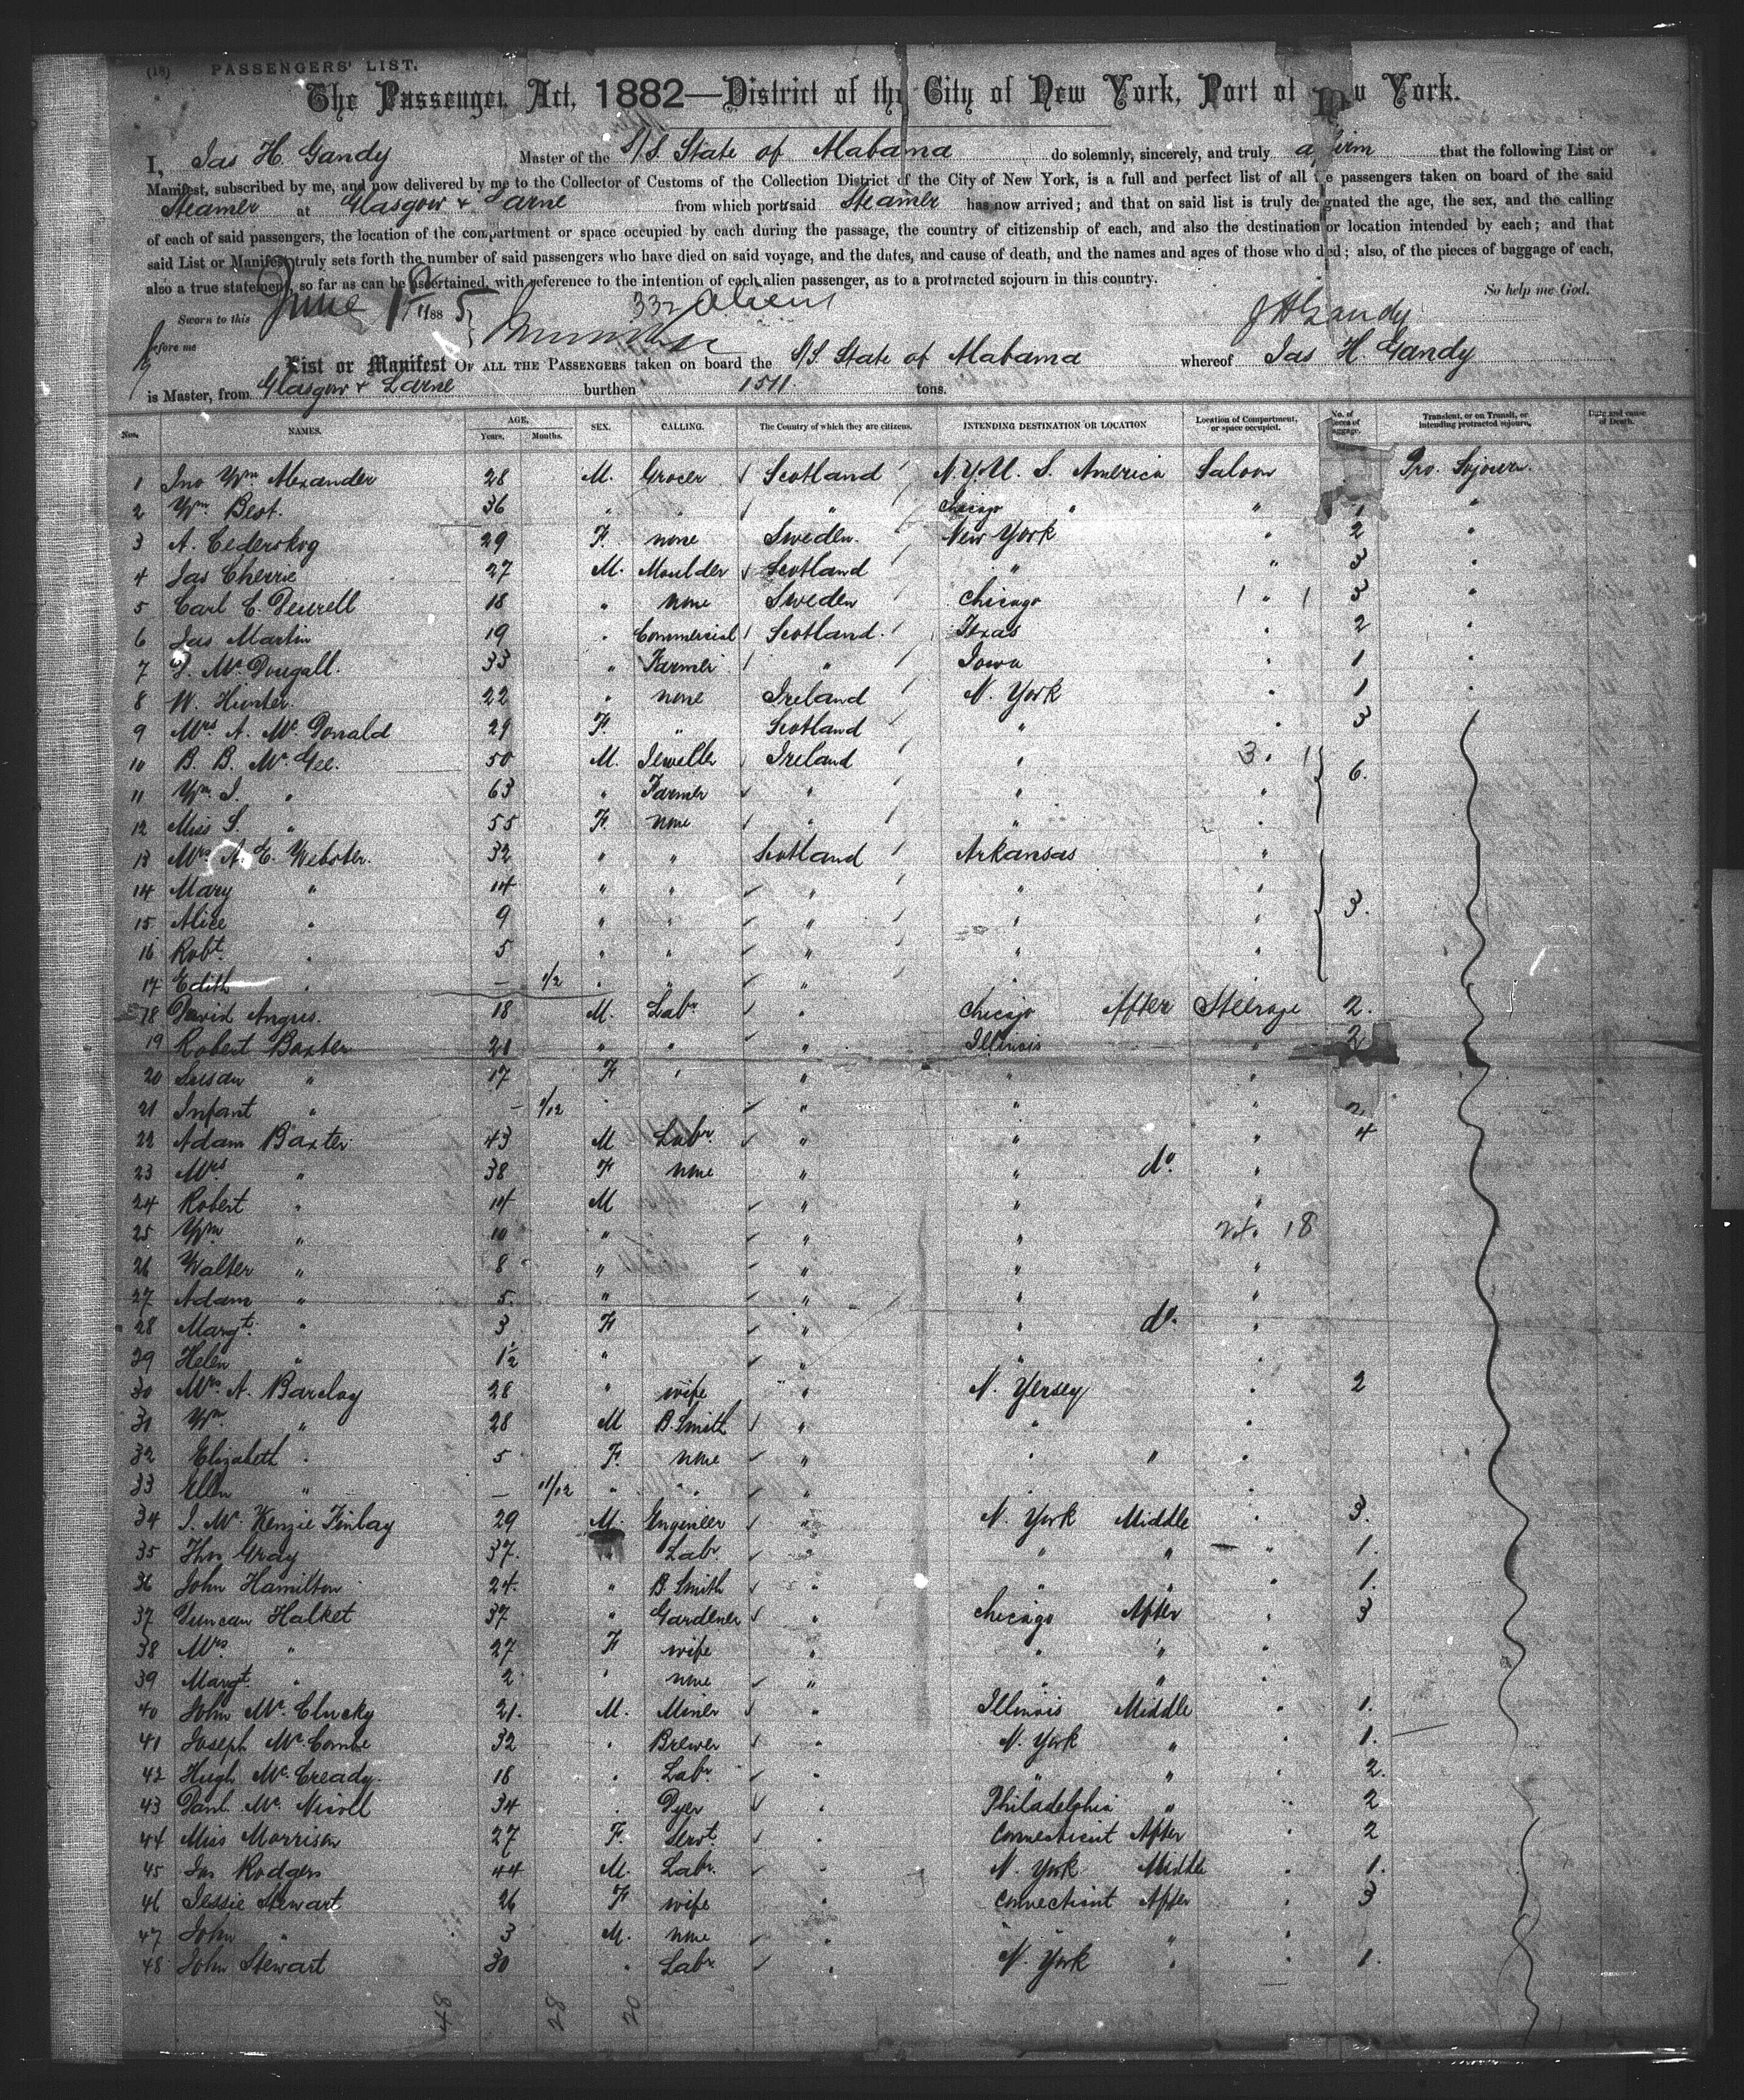 (18) PASSENGERS' LIST.
The Passenger Act, 1882—District of the City of New York, Port of New York.
I, Jas H. Gandy Master of the S/S. State of Alabama do solemnly, sincerely, and truly affirm that the following List or
Manifest, subscribed by me, and now delivered by me to the Collector of Customs of the Collection District of the City of New York, is a full and perfect list of all the passengers taken on board of the said
Steamer at Glasgow & Larne from which port said Steamer has now arrived; and that on said list is truly designated the age, the sex, and the calling
of each of said passengers, the location of the compartment or space occupied by each during the passage, the country of citizenship of each, and also the destination or location intended by each; and that
said List or Manifest truly sets forth the number of said passengers who have died on said voyage, and the dates, and cause of death, and the names and ages of those who died; also, of the pieces of baggage of each,
also a true statement, so far as can be ascertained, with reference to the intention of each alien passenger, as to a protracted sojourn in this country. So help me God.
Sworn to this June 1st 1885 332 Aliens J H Gandy
before me
List or Manifest OF ALL THE PASSENGERS taken on board the S/S. State of Alabama whereof Jas H. Gandy
is Master, from Glasgow & Larne burthen 1511 tons.
Nos. NAMES. AGE, Years. Months. SEX. CALLING. The Country of which they are citizens. INTENDING DESTINATION OR LOCATION Location of Compartment, or space occupied. No. of pieces of baggage. Transient, or on Transit, or intending protracted sojourn. Date and cause of Death.
1 Jno Wm Alexander 28 M. Grocer Scotland N.Y. U. S. America Saloon Pro. Sojourn.
2 Wm. Best. 36 " " " Chicago " " 1 "
3 A. Cederskog 29 F. none Sweden. New York " 2 "
4 Jas Cherrie 27 M. Moulder Scotland " " 3 "
5 Carl E. Deurell 18 " none Sweden Chicago 1 " 3 "
6 Jas Martin 19 " Commercial Scotland. Texas " 2 "
7 D. McDougall. 33 " Farmer " Iowa " 1 "
8 W. Hunter. 22 " none Ireland N. York " 1 "
9 Mrs A. McDonald 29 F. " Scotland " " 3
10 B. B. McGee. 50 M. Jeweller Ireland " 3 " 6.
11 Wm. J. " 63 " Farmer " " "
12 Miss S. " 55 F. none " " "
13 Mrs A. E. Webster. 32 " " Scotland Arkansas "
14 Mary " 14 " " " " "
15 Alice " 9 " " " " " 3.
16 Robt. " 5 " " " " "
17 Edith " — 1/2 " " " " "
18 David Angus. 18 M. Labr " Chicago After Steerage 2.
19 Robert Baxter 21 " " " Illinois " 2
20 Susan " 17 F " " " "
21 Infant " — 1/12 " " " " 2
22 Adam Baxter 43 M Labr. " " " 4
23 Mrs " 38 F none " " do. "
24 Robert " 14 M " " "
25 Wm " 10 " " " 18
26 Walter " 8 " " " "
27 Adam " 5 " " " "
28 Margt. " 3 F " " do. "
29 Helen " 1½ " " " "
30 Mrs. A. Barclay 28 " wife " N. Yersey " 2
31 Wm " 28 M B. Smith " " "
32 Elizabeth " 5 F. none " " " "
33 Ellen " — 11/12 " " " " "
34 J. McKenzie Finlay 29 M. Engineer " N. York Middle " 3.
35 Thos Gray 37. " Labr. " " " " 1.
36 John Hamilton 24. " B. Smith " " " " 1.
37 Duncan Halket 37 " Gardener " Chicago After " 3
38 Mrs " 27 F wife " " " "
39 Margt. " 2 " none " " " "
40 John McClucky 21. M. Miner " Illinois Middle " 1.
41 Joseph McCombe 32 " Brewer " N. York " " 1.
42 Hugh McCready. 18 " Labr. " " " " 2.
43 Danl. McNicoll 34 " Dyer " Philadelphia " " 2
44 Miss Morrison 27 F. Servt. " Connecticut After " 2
45 Jas Rodgers 44 M. Labr. " N. York Middle " 1.
46 Jessie Stewart 26 F wife " Connecticut After " 3
47 John " 3 M. none " " " "
48 John Stewart 30 " Labr " N. York " " 1.
48 28 20